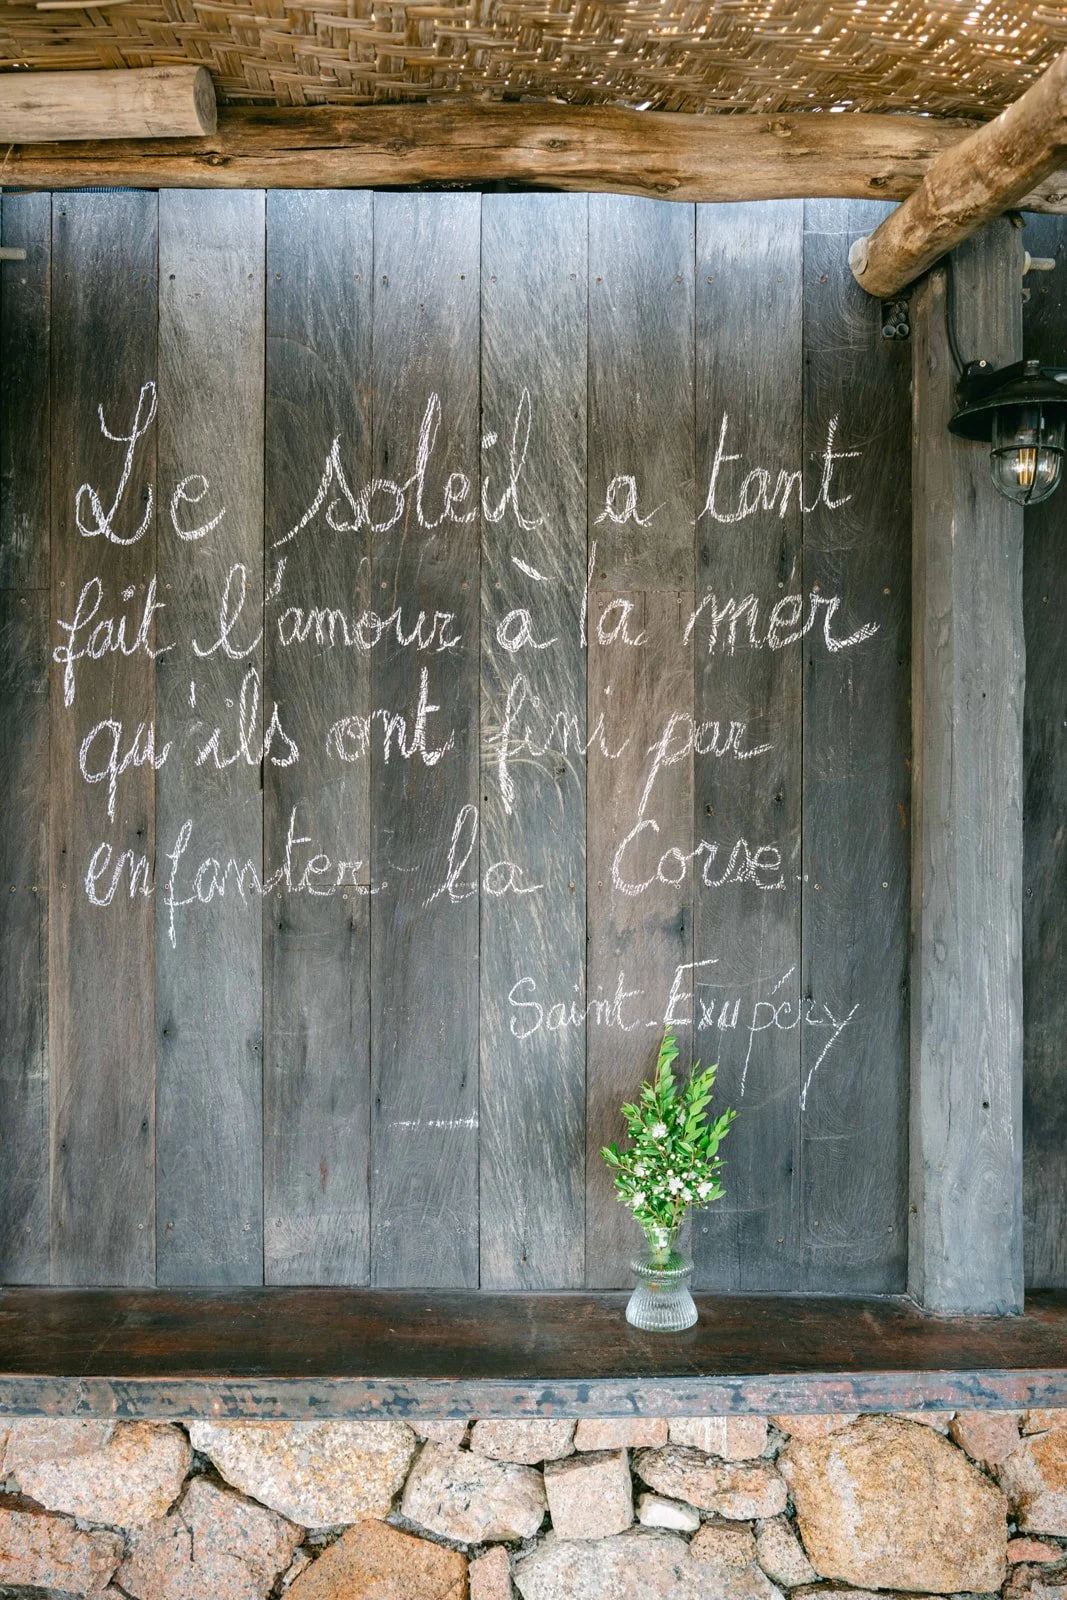 Le soleil a tant
fait l'amour à la mer
qu'ils ont fini par
enfanter la Corse.
Saint-Exupéry